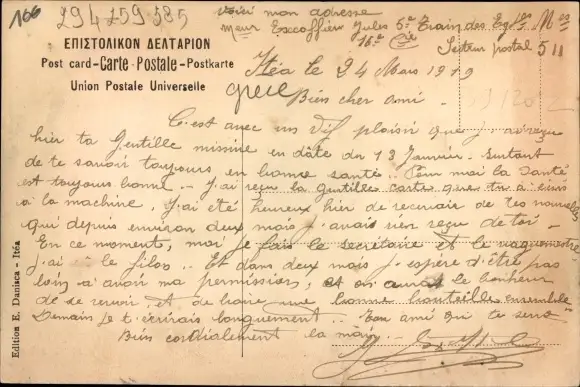 166
294 259 385
voici mon adresse
Meur Escoffier Jules 5e Train des Eq Mes
16e Cie
Secteur postal 511
ΕΠΙΣΤΟΛΙΚΟΝ ΔΕΛΤΑΡΙΟΝ
Post card-Carte Postale-Postkarte
Union Postale Universelle
Itéa le 24 Mars 1919
grece
Bien cher ami.
C'est avec un vif plaisir que j'ai reçu
hier ta Gentille missive en dâte du 13 Janvier. surtout
de te savoir toujours en bonne santé. Pour moi la santé
est toujours bonne. - J'ai reçu la gentille carte que tu a écris
à la machine, J'ai été heureux hier de recevoir de tes nouvelles
qui depuis environ deux mois j'avais rien reçu de toi -
En ce moments, moi je fais le secrétaire et le vaguemestre
j'ai le filon.. Et dans deux mois j'espère d'être pas
loin d'avoir ma permission, et on aurat le bonheur
de se revoir, et de boire une bonne bouteille ensemble
Demain je t'écrirais longuement.. Ton ami qui te serre
Bien cordialement la main.
Edition E. Danisca - Itéa